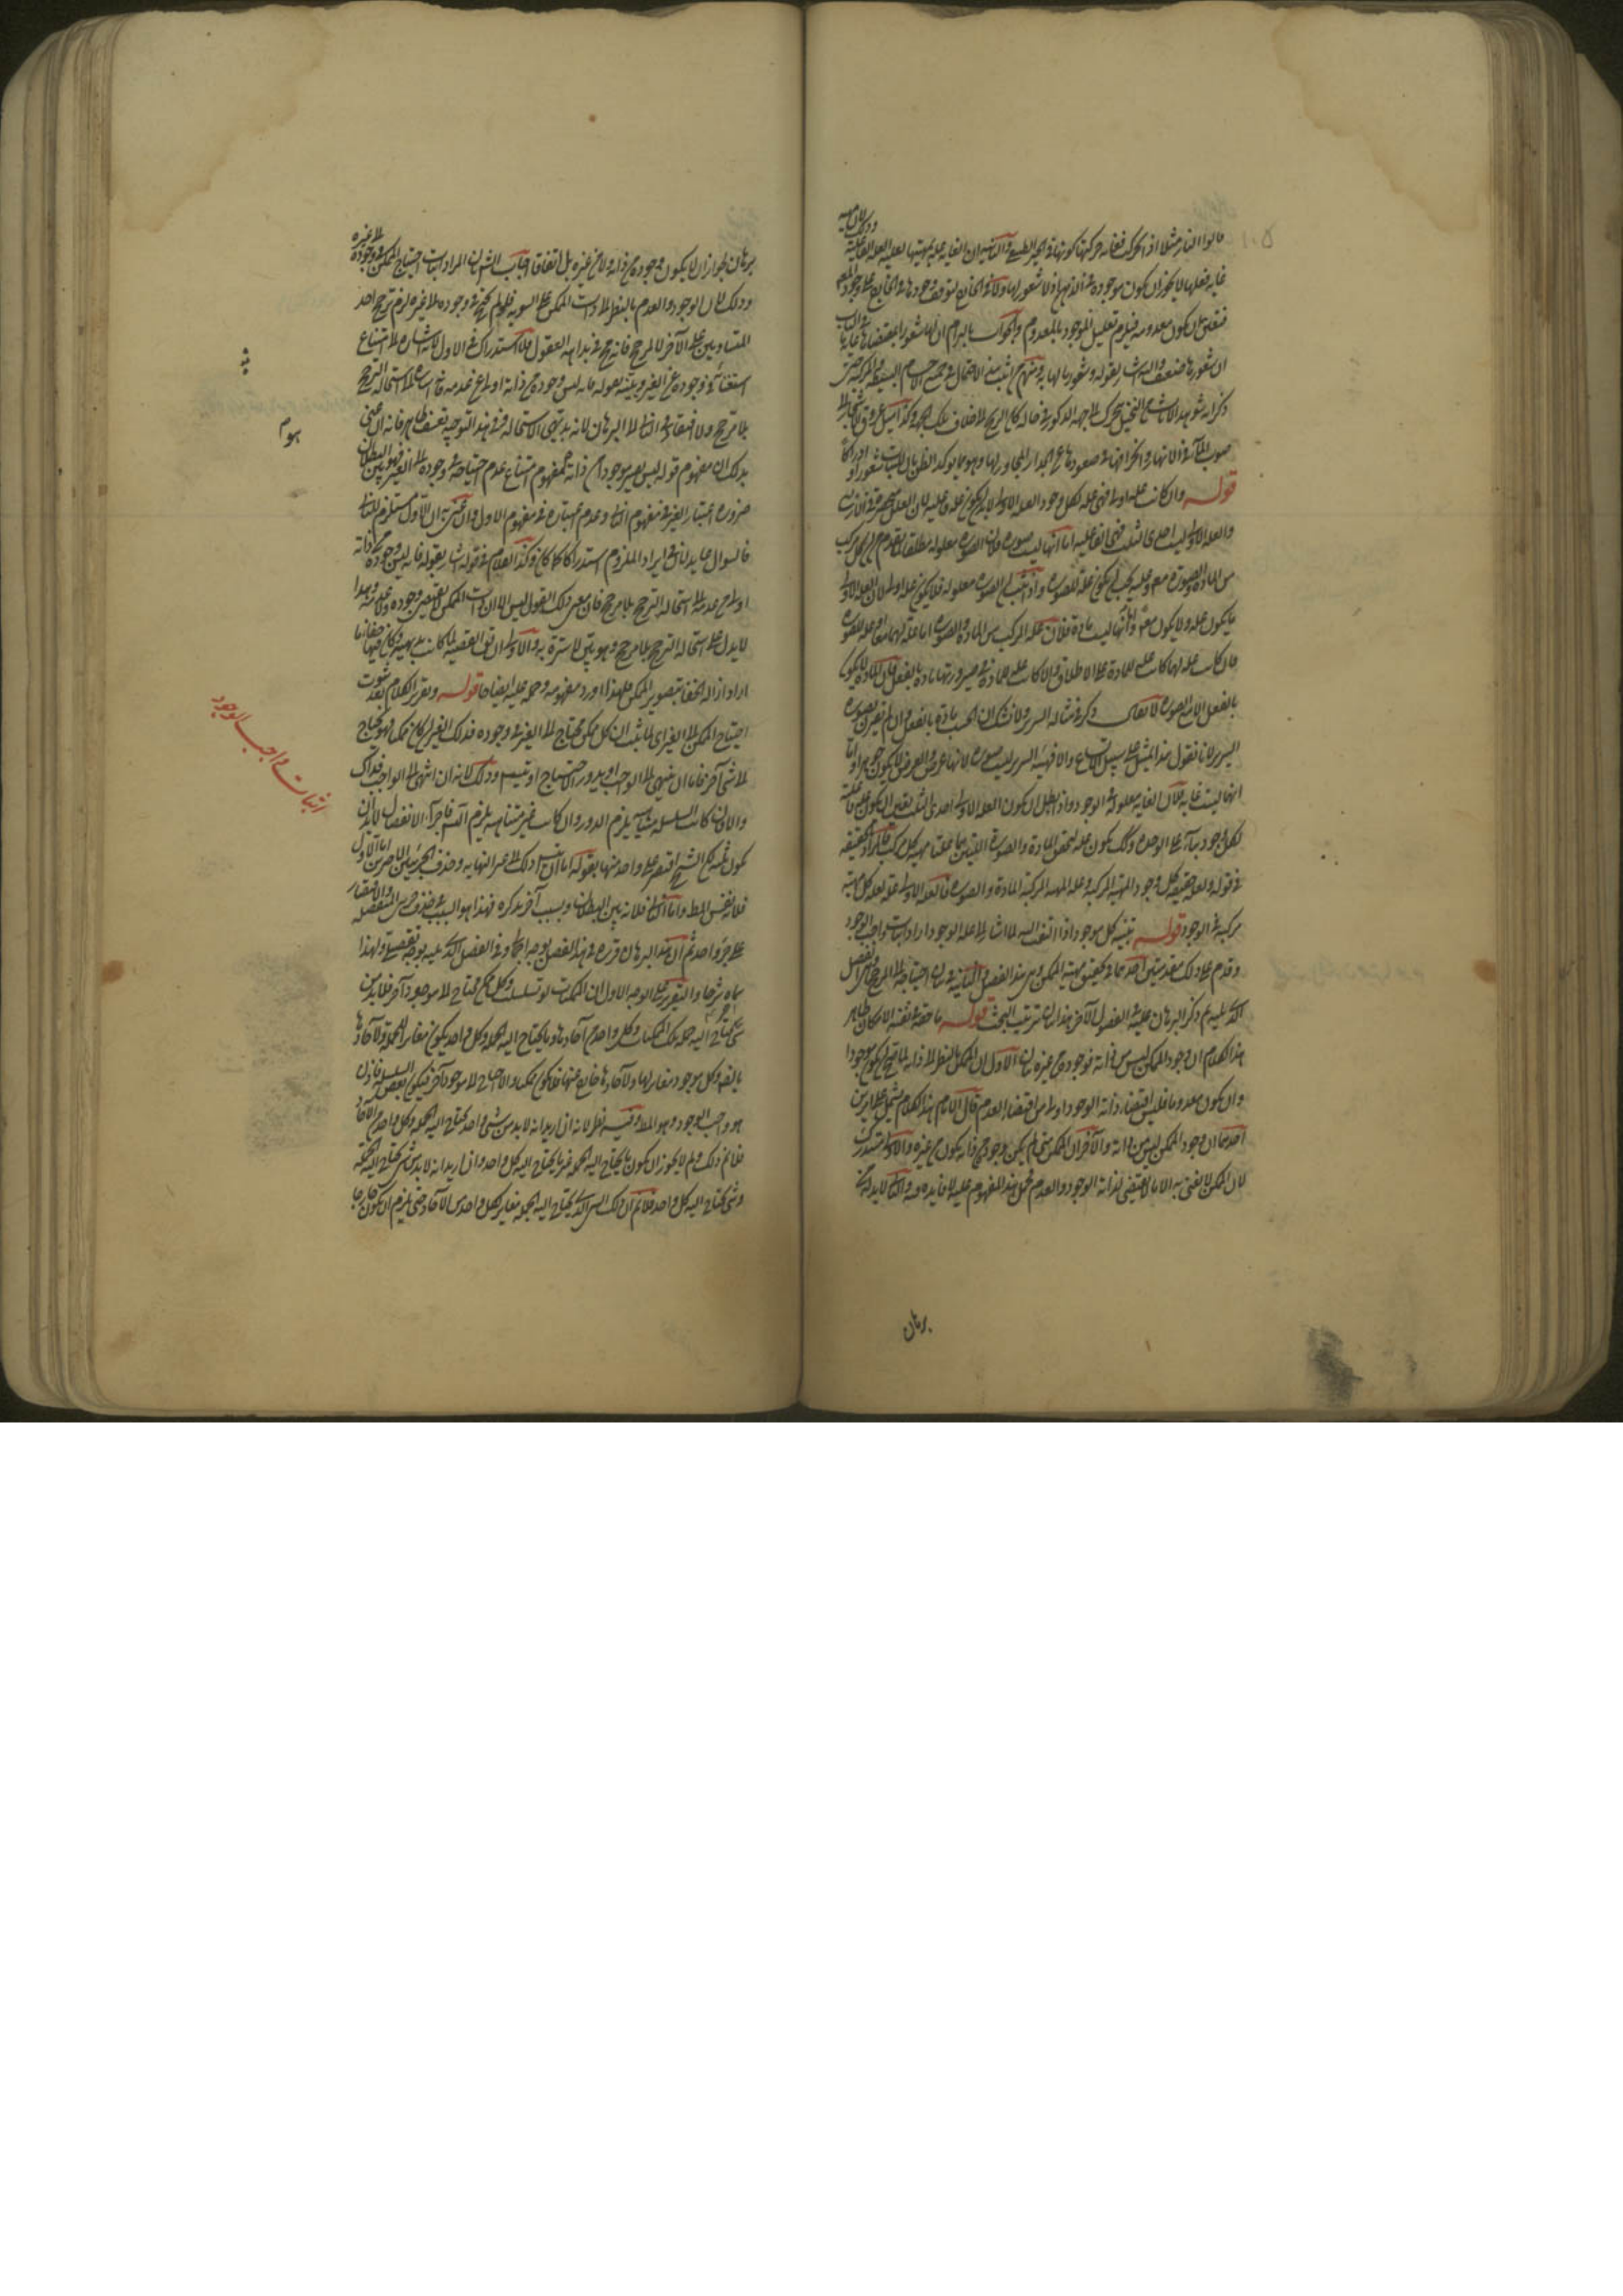 قالوا النار مثلا اذا تحركت فغاية حركتها كونها في الحيز الطبيعي
غاية فعلها لا يجوز ان يكون موجودة في اذهانها اذ لا شعور لها ولا في الخارج لتوقف وجودها في الخارج على وجود
فتعين ان يكون معدومة فيلزم تعليل الموجود بالمعدوم والجواب بالتزام ان لها شعورا بمقتضاها
ان شعورها ضعيف واليه اشار بقوله وشعور ما لها به ومنهم من اثبت هذا الاحتمال في جميع الاجسام البسيطة والمركبة حتى
صوب الماء في الانهار وانحرافها في صعودها عن الجدار المجاور لها وهو مما يؤكد الظن بان للنبات شعورا وادراكا
قوله وان كانت علة اولى فهي علة لكل وجود العلة الاولى لا بد ان يكون علة فاعلية لان العلل منحصرة في الاربع
والعلة الاولى ليست احدى الثلث فهي الفاعلية اما انها ليست صورة فلان الصورة معلولة مطلقا
من المادة والصورة معلوم عليته يجب ان يكون علة للصورة واذا ثبت ان الصورة معلولة فلا يكون علة اولى لان العلة الاولى
ما يكون علة ولا يكون معلولا واما انها ليست مادة فلان علة المركب من المادة والصورة اما علة لهما معا او علة للصورة
فان كانت علة لهما كانت علة للمادة على الاطلاق والا كانت علة للمادة في صيرورتها مادة بالفعل فان المادة لا يكون
بالفعل الا مع الصورة لا يقال ذكر في مثاله السرير ولا شك ان الخشب مادة بالفعل وان لم يقترن بصورة
السرير لانا نقول هذا التمثيل على سبيل الاتساع والا فهيئة السرير ليست صورة لانها عرض والعرض لا يكون جوهرا واما
انها ليست غاية فلان الغاية معلولة في الوجود واذا بطل ان يكون العلة الاولى احدى الثلث تعين ان يكون علة فاعلية
لكل وجود بناء على الوحدة وكذلك يكون علة لتحقق المادة والصورة اللتين هما علتا مهية كل مركب فالمراد بالحقيقة
في قوله ولعلة حقيقة كل وجود المهية المركبة وعلة المهية المركبة المادة والصورة فالعلة الاولى علة لعلة كل مهية
مركبة في الوجود قوله تنبيه كل موجود اذا التفت اليه لما اشار الى علة الوجود اراد اثبات واجب الوجود
وقدم على ذلك مقدمتين احدهما في تحقيق مهية الممكن وهي هذا الفصل والثانية في بيان احتياجه الى المرجح وهي الفصل
الذي يليه ثم ذكر البرهان عليه في الفصول الآخر هذا بيان ترتيب البحث قوله ما حقه في نفسه الامكان ظاهر
هذا الكلام ان وجود الممكن ليس من ذاته فوجوده من غيره بيان الاول ان الممكن بالنظر الى ذاته لما صح ان يكون موجودا
وان يكون معدوما فليس اقتضاء ذاته الوجود اولى من اقتضاء العدم قال الامام هذا الكلام مشتمل على امرين
احدهما ان وجود الممكن ليس من ذاته والآخر ان الممكن متى لم يكن وجوده من ذاته يكون من غيره والاول مستدرك
لان الممكن لا يعنى به الا ما لا يقتضي لذاته الوجود والعدم فحمل هذا المفهوم عليه لا فايدة فيه والثاني لا بد له من
برهان
برهان لجواز ان لا يكون وجوده من ذاته ولا من غيره بل اتفاقا اجاب الشارح بان المراد اثبات احتياج الممكن في وجوده الى غيره
وذلك لان الوجود والعدم بالنظر الى ذات الممكن على السوية فلو لم يحتج في وجوده الى غيره لزم ترجح احد
المتساويين على الآخر لا لمرجح فانه مح في بداهة العقول فلا استدراك في الاول لانه اشارة الى امتناع
استغنائه في وجوده عن الغير وبينه بقوله فانه ليس وجوده من ذاته اولى من عدمه فانه اشارة الى استحالة الترجح
بلا مرجح ولا افتقار في الثاني الى البرهان لانه بديهي الاستحالة وفي هذا التوجيه تعسف ظاهر فانه ان عنى
بذلك ان مفهوم قوله ليس يصير موجودا من ذاته مفهوم امتناع عدم احتياجه في وجوده الى الغير فهو بين البطلان
ضرورة اعتبار الغير في مفهوم الثاني وعدم اعتباره في مفهوم الاول وان عنى به ان الاول مستلزم للثاني
فالسؤال عايد لان في ايراد الملزوم استدراكا كما كان وكذا الكلام في قوله اشار بقوله فانه ليس وجوده من ذاته
اولى من عدمه الى استحالة الترجح بلا مرجح فان معنى ذلك القول ليس الا ان ذات الممكن لا يقتضي وجوده ولا عدمه وهذا
لا يدل على استحالة الترجح بلا مرجح وهو بين لا سترة به والاولى ان يقال القضية لما كانت بديهية وكان فيها خفاء ما
اراد ازالة الخفاء بتصوير الممكن فلهذا اورد مفهومه وحمله عليه ايضاحا قوله وتقرير الكلام بعد ثبوت
احتياج الممكن الى الغير اي لما ثبت ان كل ممكن محتاج الى الغير في وجوده فذلك الغير ان كان ممكنا فهو محتاج
الى شيء آخر فاما ان ينتهي الى الواجب او يدور الاحتياج او يتسلسل وذلك لانه ان انتهى الى الواجب فذاك
والا فان كانت السلسلة متناهية يلزم الدور وان كانت غير متناهية يلزم التسلسل
يكون ثلثة لكن الشيخ اقتصر على واحد منها بقوله اما ان يتسلسل ذلك الى غير النهاية وحذف الجزئين الآخرين اما الاول
فلانه نفس المط واما الثاني فلانه بين البطلان وبسبب آخر يذكره فهذا هو السبب في حذف جزئي المنفصلة والاقتصار
على جزء واحد ثم ان هذا البرهان قرره في هذا الفصل بوجه اجمالي وفي الفصل الذي يليه بوجه تفصيلي ولهذا
سماه شرحا والتقرير على الوجه الاول ان الممكنات لو تسلسلت وكل ممكن محتاج الى موجود آخر فلا بد من
شيء يحتاج اليه جملة تلك الممكنات وكل واحد من آحادها وما يحتاج اليه الجملة وكل واحد يكون مغايرا للجملة ولآحادها
بالضرورة وكل موجود مغاير لها ولآحادها خارج عنها فلا يكون ممكنا والا احتاج الى موجود آخر فيكون بعض السلسلة فاذن
هو واجب الوجود وهو المط وفيه نظر لانه ان اريد انه لا بد من شيء واحد يحتاج اليه الجملة وكل واحد من الآحاد
فلا نم ذلك ولم لا يجوز ان يكون ما يحتاج اليه الجملة غير ما يحتاج اليه كل واحد وان اريد انه لا بد من شيء يحتاج اليه الجملة
وشيء يحتاج اليه كل واحد فلا نم ان ذلك الشيء الذي يحتاج اليه الجملة مغاير لكل واحد من الآحاد حتى يلزم ان يكون خارجا
اثبات واجب الوجود